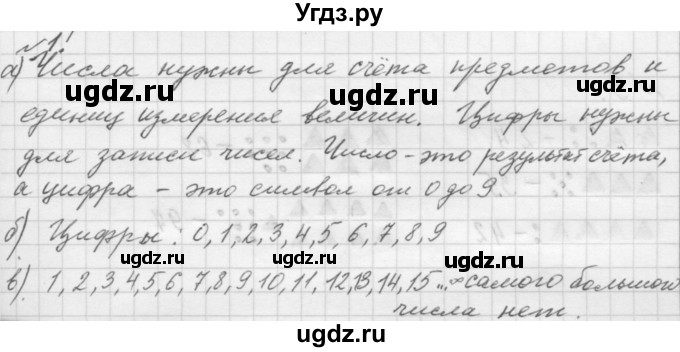 Угдз.ру
№1.
а) Числа нужны для счёта предметов и
единиц измерения величин. Цифры нужны
для записи чисел. Число - это результат счёта,
а цифра - это символ от 0 до 9.
б) Цифры: 0, 1, 2, 3, 4, 5, 6, 7, 8, 9
в) 1, 2, 3, 4, 5, 6, 7, 8, 9, 10, 11, 12, 13, 14, 15 ... ∞ самого большого
числа нет.
ugdz.ru
ugdz.ru
ugdz.ru
ugdz.ru
ugdz.ru
ugdz.ru
ugdz.ru
ugdz.ru